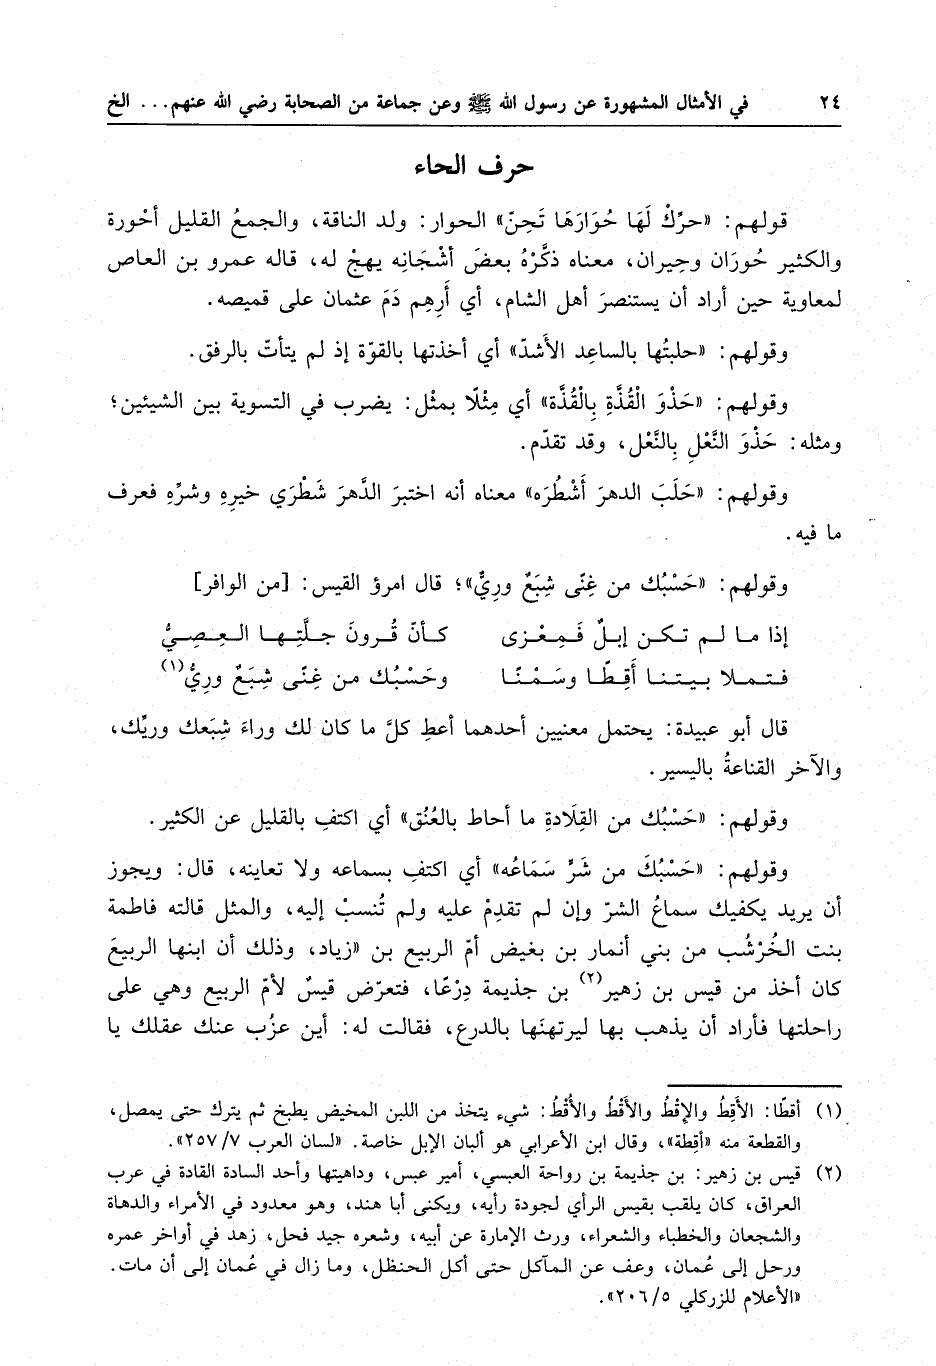 ٢٤ في الأمثال المشهورة عن رسول الله ﷺ وعن جماعة من الصحابة رضي الله عنهم... الخ
حرف الحاء
قولهم: «حرِّكْ لَهَا حُوَارَهَا تَحِنّ» الحوار: ولد الناقة، والجمعُ القليل أحْورة
والكثير حُورَان وحِيران، معناه ذكَّرْهُ بعضَ أشْجَانِه يهجْ له، قاله عمرو بن العاص
لمعاوية حين أراد أن يستنصرَ أهل الشام، أي أَرِهِم دَمَ عثمان على قميصه.
وقولهم: «حلبتُها بالساعِد الأَشدّ» أي أخذتها بالقوّة إذ لم يتأتّ بالرفق.
وقولهم: «حَذْوَ الْقُذَّةِ بِالْقُذَّة» أي مِثْلًا بمثْل: يضرب في التسوية بين الشيئين؛
ومثله: حَذْوَ النَّعْلِ بِالنَّعْل، وقد تقدّم.
وقولهم: «حَلَبَ الدهرَ أَشْطُرَه» معناه أنه اختبرَ الدَّهرَ شَطْرَي خيرِهِ وشرِّهِ فعرف
ما فيه.
وقولهم: «حَسْبُك من غِنًى شِبَعٌ ورِيٌّ»؛ قال امرؤ القيس: [من الوافر]
إذا ما لم تكن إبلٌ فَمِعْزى كأنّ قُرونَ جلَّتِها العِصِيُّ
فتملا بيتنا أَقِطًا وسَمْنًا وحَسْبُك من غِنًى شِبَعٌ ورِيُّ(١)
قال أبو عبيدة: يحتمل معنيين أحدهما أعطِ كلَّ ما كان لك وراءَ شِبَعك وريِّك،
والآخر القناعةُ باليسير.
وقولهم: «حَسْبُك من القِلَادةِ ما أحاط بالعُنُق» أي اكتفِ بالقليل عن الكثير.
وقولهم: «حَسْبُكَ من شَرٍّ سَمَاعُه» أي اكتفِ بسماعه ولا تعاينه، قال: ويجوز
أن يريد يكفيك سماعُ الشرّ وإن لم تقدِمْ عليه ولم تُنسبْ إليه، والمثل قالته فاطمة
بنت الخُرْشُب من بني أنمار بن بغيض أمّ الربيع بن «زياد، وذلك أن ابنها الربيعَ
كان أخذ من قيس بن زهير(٢) بن جذيمة دِرْعًا، فتعرّض قيسٌ لأمّ الربيع وهي على
راحلتها فأراد أن يذهب بها ليرتهنَها بالدرع، فقالت له: أين عزُب عنك عقلك يا
(١) أقطًا: الأَقِطُ والإِقْطُ والأَقْطُ والأُقْطُ: شيء يتخذ من اللبن المخيض يطبخ ثم يترك حتى يمصل،
والقطعة منه «أقِطة»، وقال ابن الأعرابي هو ألبان الإبل خاصة. «لسان العرب ٢٥٧/٧».
(٢) قيس بن زهير: بن جذيمة بن رواحة العبسي، أمير عبس، وداهيتها وأحد السادة القادة في عرب
العراق، كان يلقب بقيس الرأي لجودة رأيه، ويكنى أبا هند، وهو معدود في الأمراء والدهاة
والشجعان والخطباء والشعراء، ورث الإمارة عن أبيه، وشعره جيد فحل، زهد في أواخر عمره
ورحل إلى عُمان، وعف عن المآكل حتى أكل الحنظل، وما زال في عُمان إلى أن مات.
«الأعلام للزركلي ٢٠٦/٥».